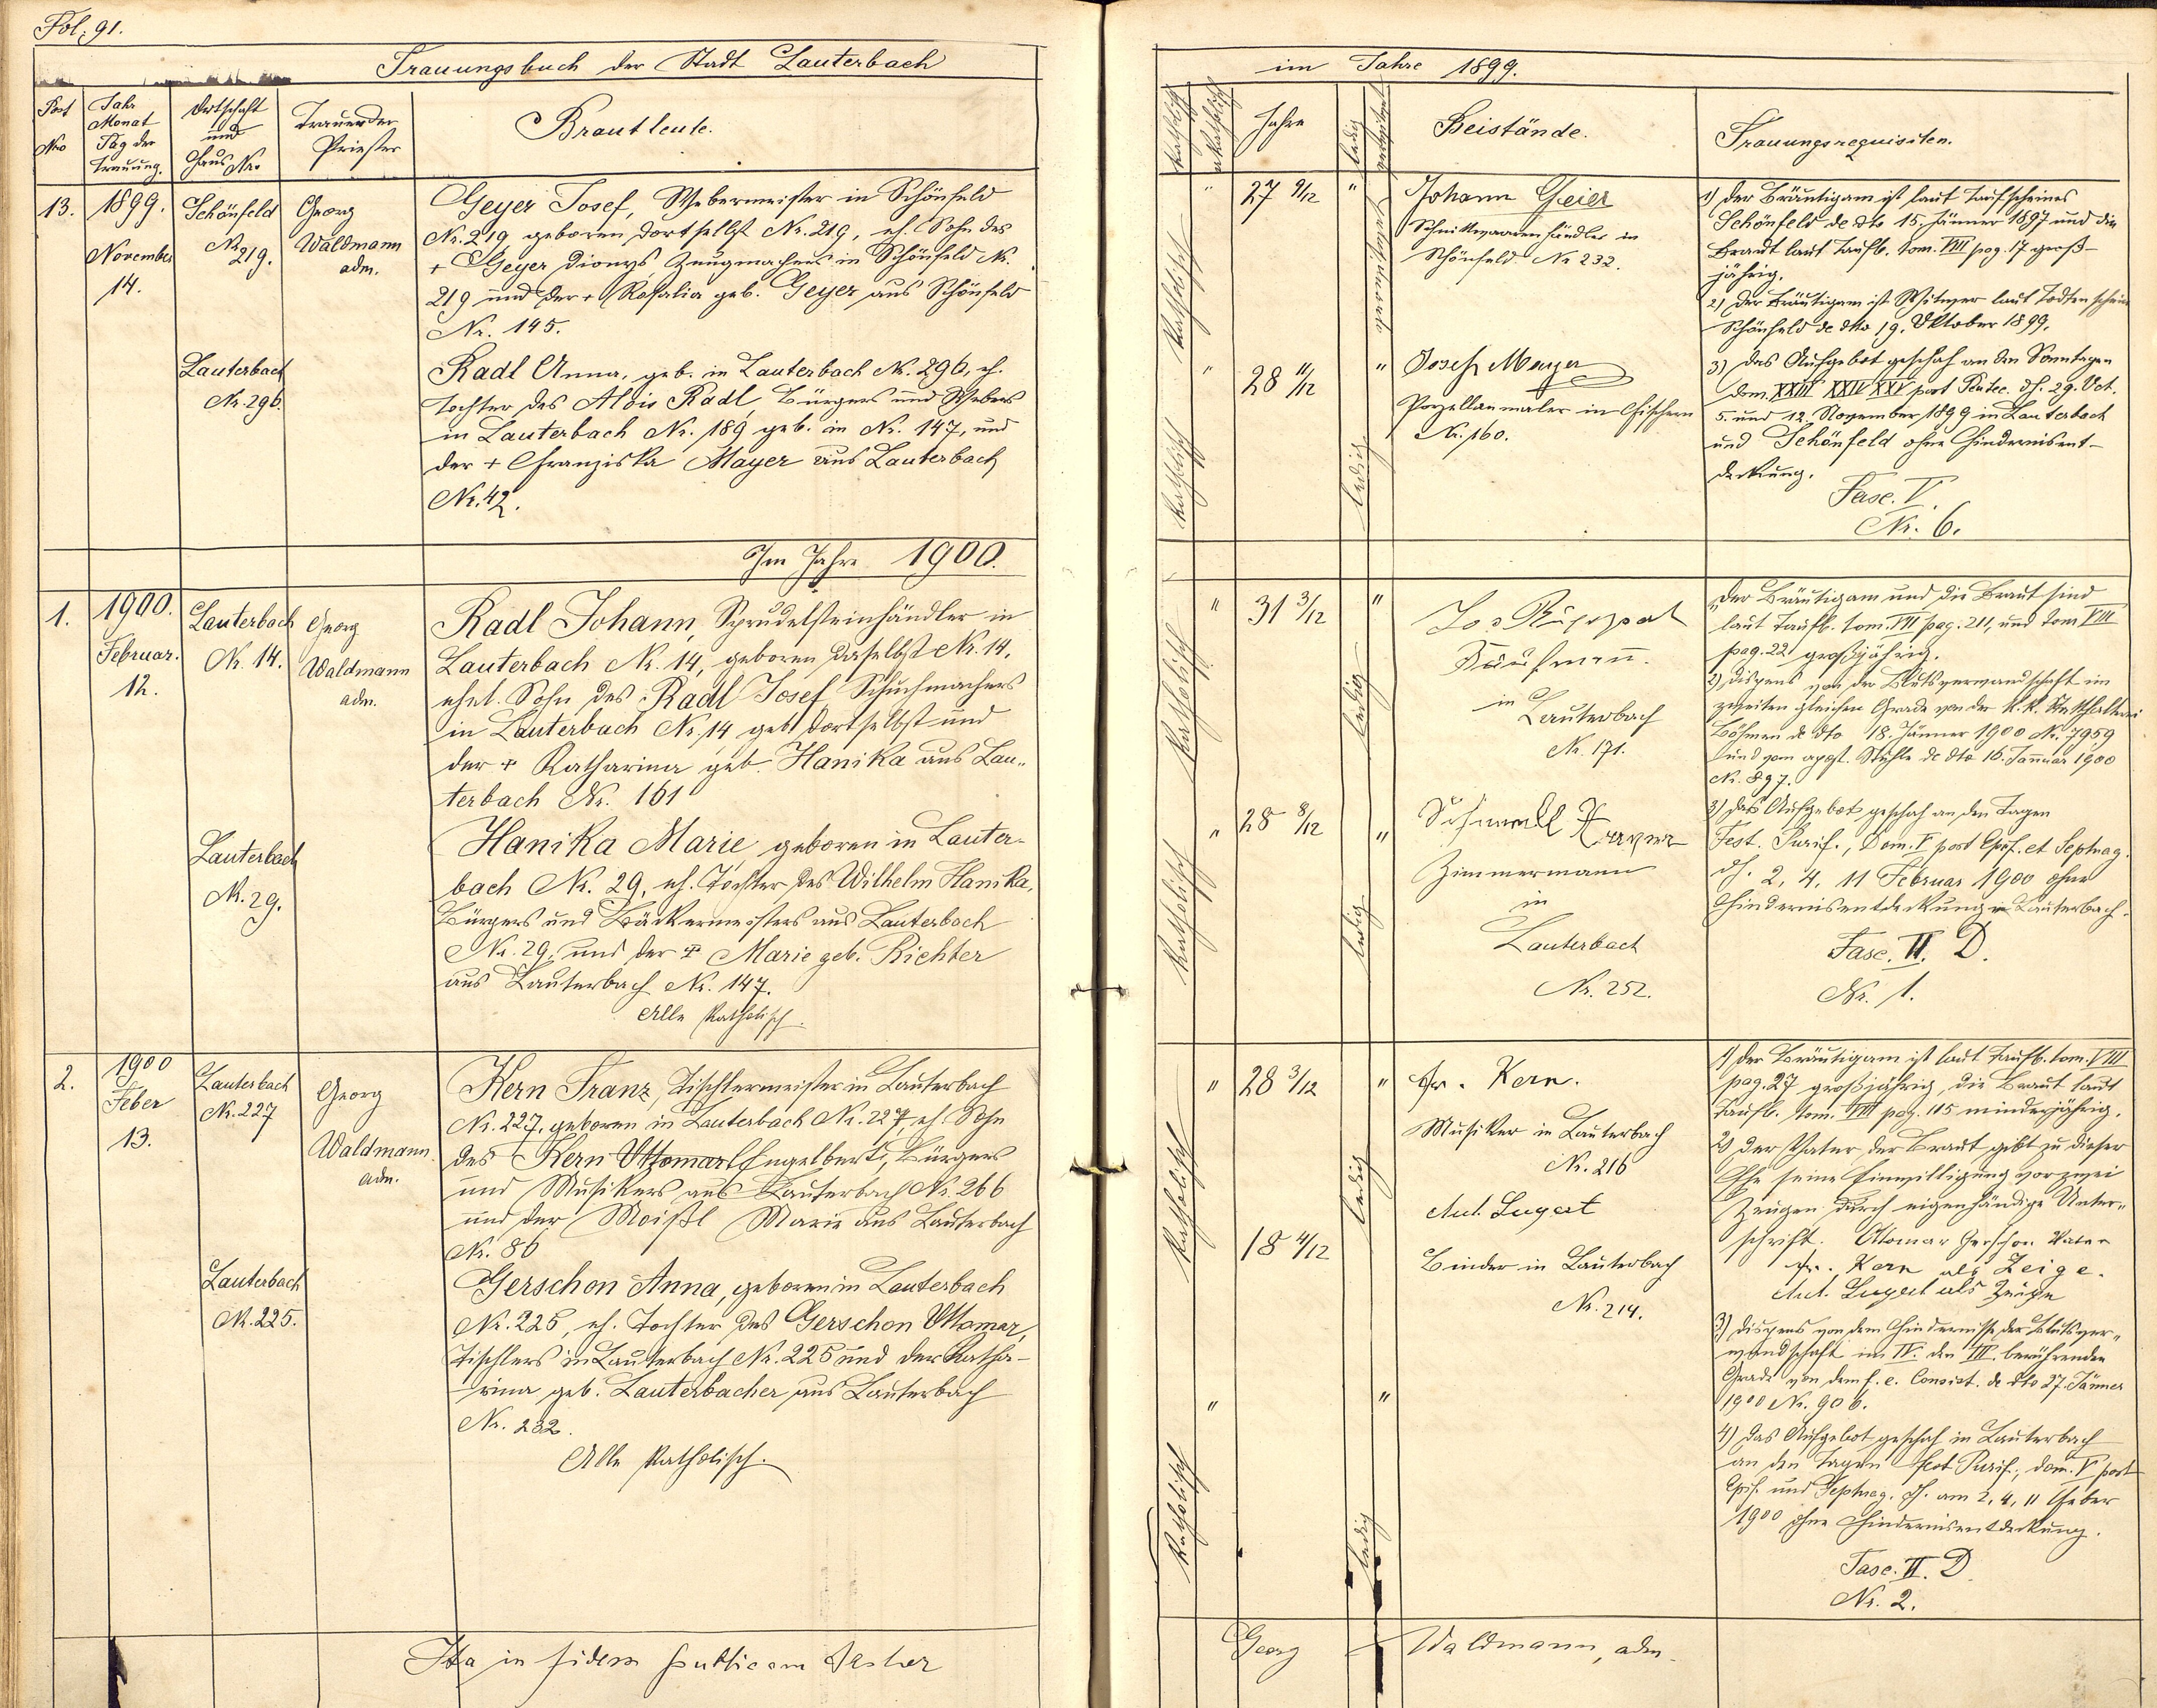 Fol. 91.
Trauungsbuch der Stadt Lauterbach
Post Nro
Jahr Monat Tag der Trauung.
Ortschaft und Haus Nro
Trauender Priester
Brautleute.
13.
1899.
November
14.
Schönfeld
Nr. 219.
Georg
Waldmann
adm.
Geyer Josef, Webermeister in Schönfeld
Nr. 219 geboren dortselbst Nr. 219, eh. Sohn des
+ Geyer Dionys Zeugmachers in Schönfeld Nr.
219 und der + Rosalia geb. Geyer aus Schönfeld
Nr. 145.
Lauterbach
Nr. 296.
Radl Anna, geb. in Lauterbach Nr. 296, eh.
Tochter des Alois Radl, Bürgers und Webers
in Lauterbach Nr. 189 geb. in Nr. 147, und
der + Franziska Mayer aus Lauterbach
Nr. 42.
Im Jahre 1900.
1.
1900.
Februar.
12.
Lauterbach
Nr. 14.
Georg
Waldmann
adm.
Radl Johann, Sprudelsteinhändler in
Lauterbach Nr. 14, geboren daselbst Nr. 14,
ehel. Sohn des Radl Josef Schuhmachers
in Lauterbach Nr. 14 geb. dortselbst und
der + Katharina geb. Hanika aus Lau-
terbach Nr. 161
Lauterbach
Nr. 29.
Hanika Marie, geboren in Lauter-
bach Nr. 29, eh. Tochter des Wilhelm Hanika,
Bürgers und Bäckermeisters aus Lauterbach
Nr. 29, und der + Marie geb. Richter
aus Lauterbach Nr. 147.
Alle Katholisch.
2.
1900
Feber
13.
Lauterbach
Nr. 227
Georg
Waldmann
adm.
Kern Franz, Tischlermeister in Lauterbach
Nr. 227, geboren in Lauterbach Nr. 227, eh. Sohn
des Kern Ottomar Engelbert, Bürgers
und Musikers aus Lauterbach Nr. 266
und der Moißl Marie aus Lauterbach
Nr. 86
Lauterbach
Nr. 225.
Gerschon Anna, geboren in Lauterbach
Nr. 225, eh. Tochter des Gerschon Ottomar,
Tischlers in Lauterbach Nr. 225 und der Katha-
rina geb. Lauterbacher aus Lauterbach
Nr. 232.
Alle Katholisch.
Ita in fidem publicam
im Jahre 1899.
Katholisch
akatholisch
Jahre
ledig
Beistände.
Trauungsrequisiten.
" 27 9/12 "
Katholisch
Johann Geier
Schnittwaarenhändler in
Schönfeld Nr 232.
" 28 11/12 "
Katholisch
ledig
Josef Mayer
Porzellanmaler in Fischern
Nr. 160.
1) Der Bräutigam ist laut Taufscheines
Schönfeld de dto 15. Jänner 1897 und die
Braut laut Taufb. tom. VIII pag. 17 groß-
jährig.
2) Der Bräutigam ist Witwer laut Todtenschein
Schönfeld de dto 19. Oktober 1899.
3) Das Aufgebot geschah an den Sonntagen
Dom. XXIII XXIV XXV post Pentec. dh. 29. Oct.
5. und 12. November 1899 in Lauterbach
und Schönfeld ohne Hindernisent-
deckung.
Fasc. V.
Nr. 6.
" 31 3/12 "
Katholisch
ledig
Kaufmann.
in
Lauterbach
Nr. 171.
" 28 8/12 "
Katholisch
ledig
Zimmermann
in
Lauterbach
Nr. 252.
1) Der Bräutigam und die Braut sind
laut Taufb. tom. VIII pag. 211, und tom VIII
pag. 22 großjährig.
2) Dispens von der Blutsverwandschaft im
zweiten gleichen Grade von der k. k. Statthalterei
Böhmen de dto 18. Jänner 1900 Nr. 7959
und vom apost. Stuhle de dto 16. Januar 1900
Nr. 897.
3) Das Aufgebot geschah an den Tagen
Fest. Purif., Dom. V post Epif. et Septuag.
dh. 2, 4, 11 Februar 1900 ohne
Hindernisentdeckung in Lauterbach.
Fasc. II. D.
Nr. 1.
" 28 3/12 "
Katholisch
ledig
Fr. Kern.
Musiker in Lauterbach
Nr. 216
18 4/12
Ant. Lugert
Binder in Lauterbach
Nr. 214.
"
"
Katholisch
ledig
1) Der Bräutigam ist laut Taufb. tom. VIII
pag. 27 großjährig, die Braut laut
Taufb. tom. VIII pag. 115 minderjährig.
2) Der Vater der Braut gibt zu dieser
Ehe seine Einwilligung vor zwei
Zeugen durch eigenhändige Unter-
schrift. Ottomar Gerschon Vater
Fr. Kern als Zeige.
Ant. Lugert als Zeuge
3) Dispens von dem Hindernisse der Blutsver-
wandschaft im IV. den III. berührenden
Grade von dem f. e. Consist. de dto 27. Jänner
1900 Nr. 906.
4) Das Aufgebot geschah in Lauterbach
an den Tagen fest Purif., Dom. V post
Epif. und Septuag. dh. am 2, 4, 11 Feber
1900 ohne Hindernisentdeckung.
Fasc. II. D
Nr. 2.
Georg Waldmann, adm.